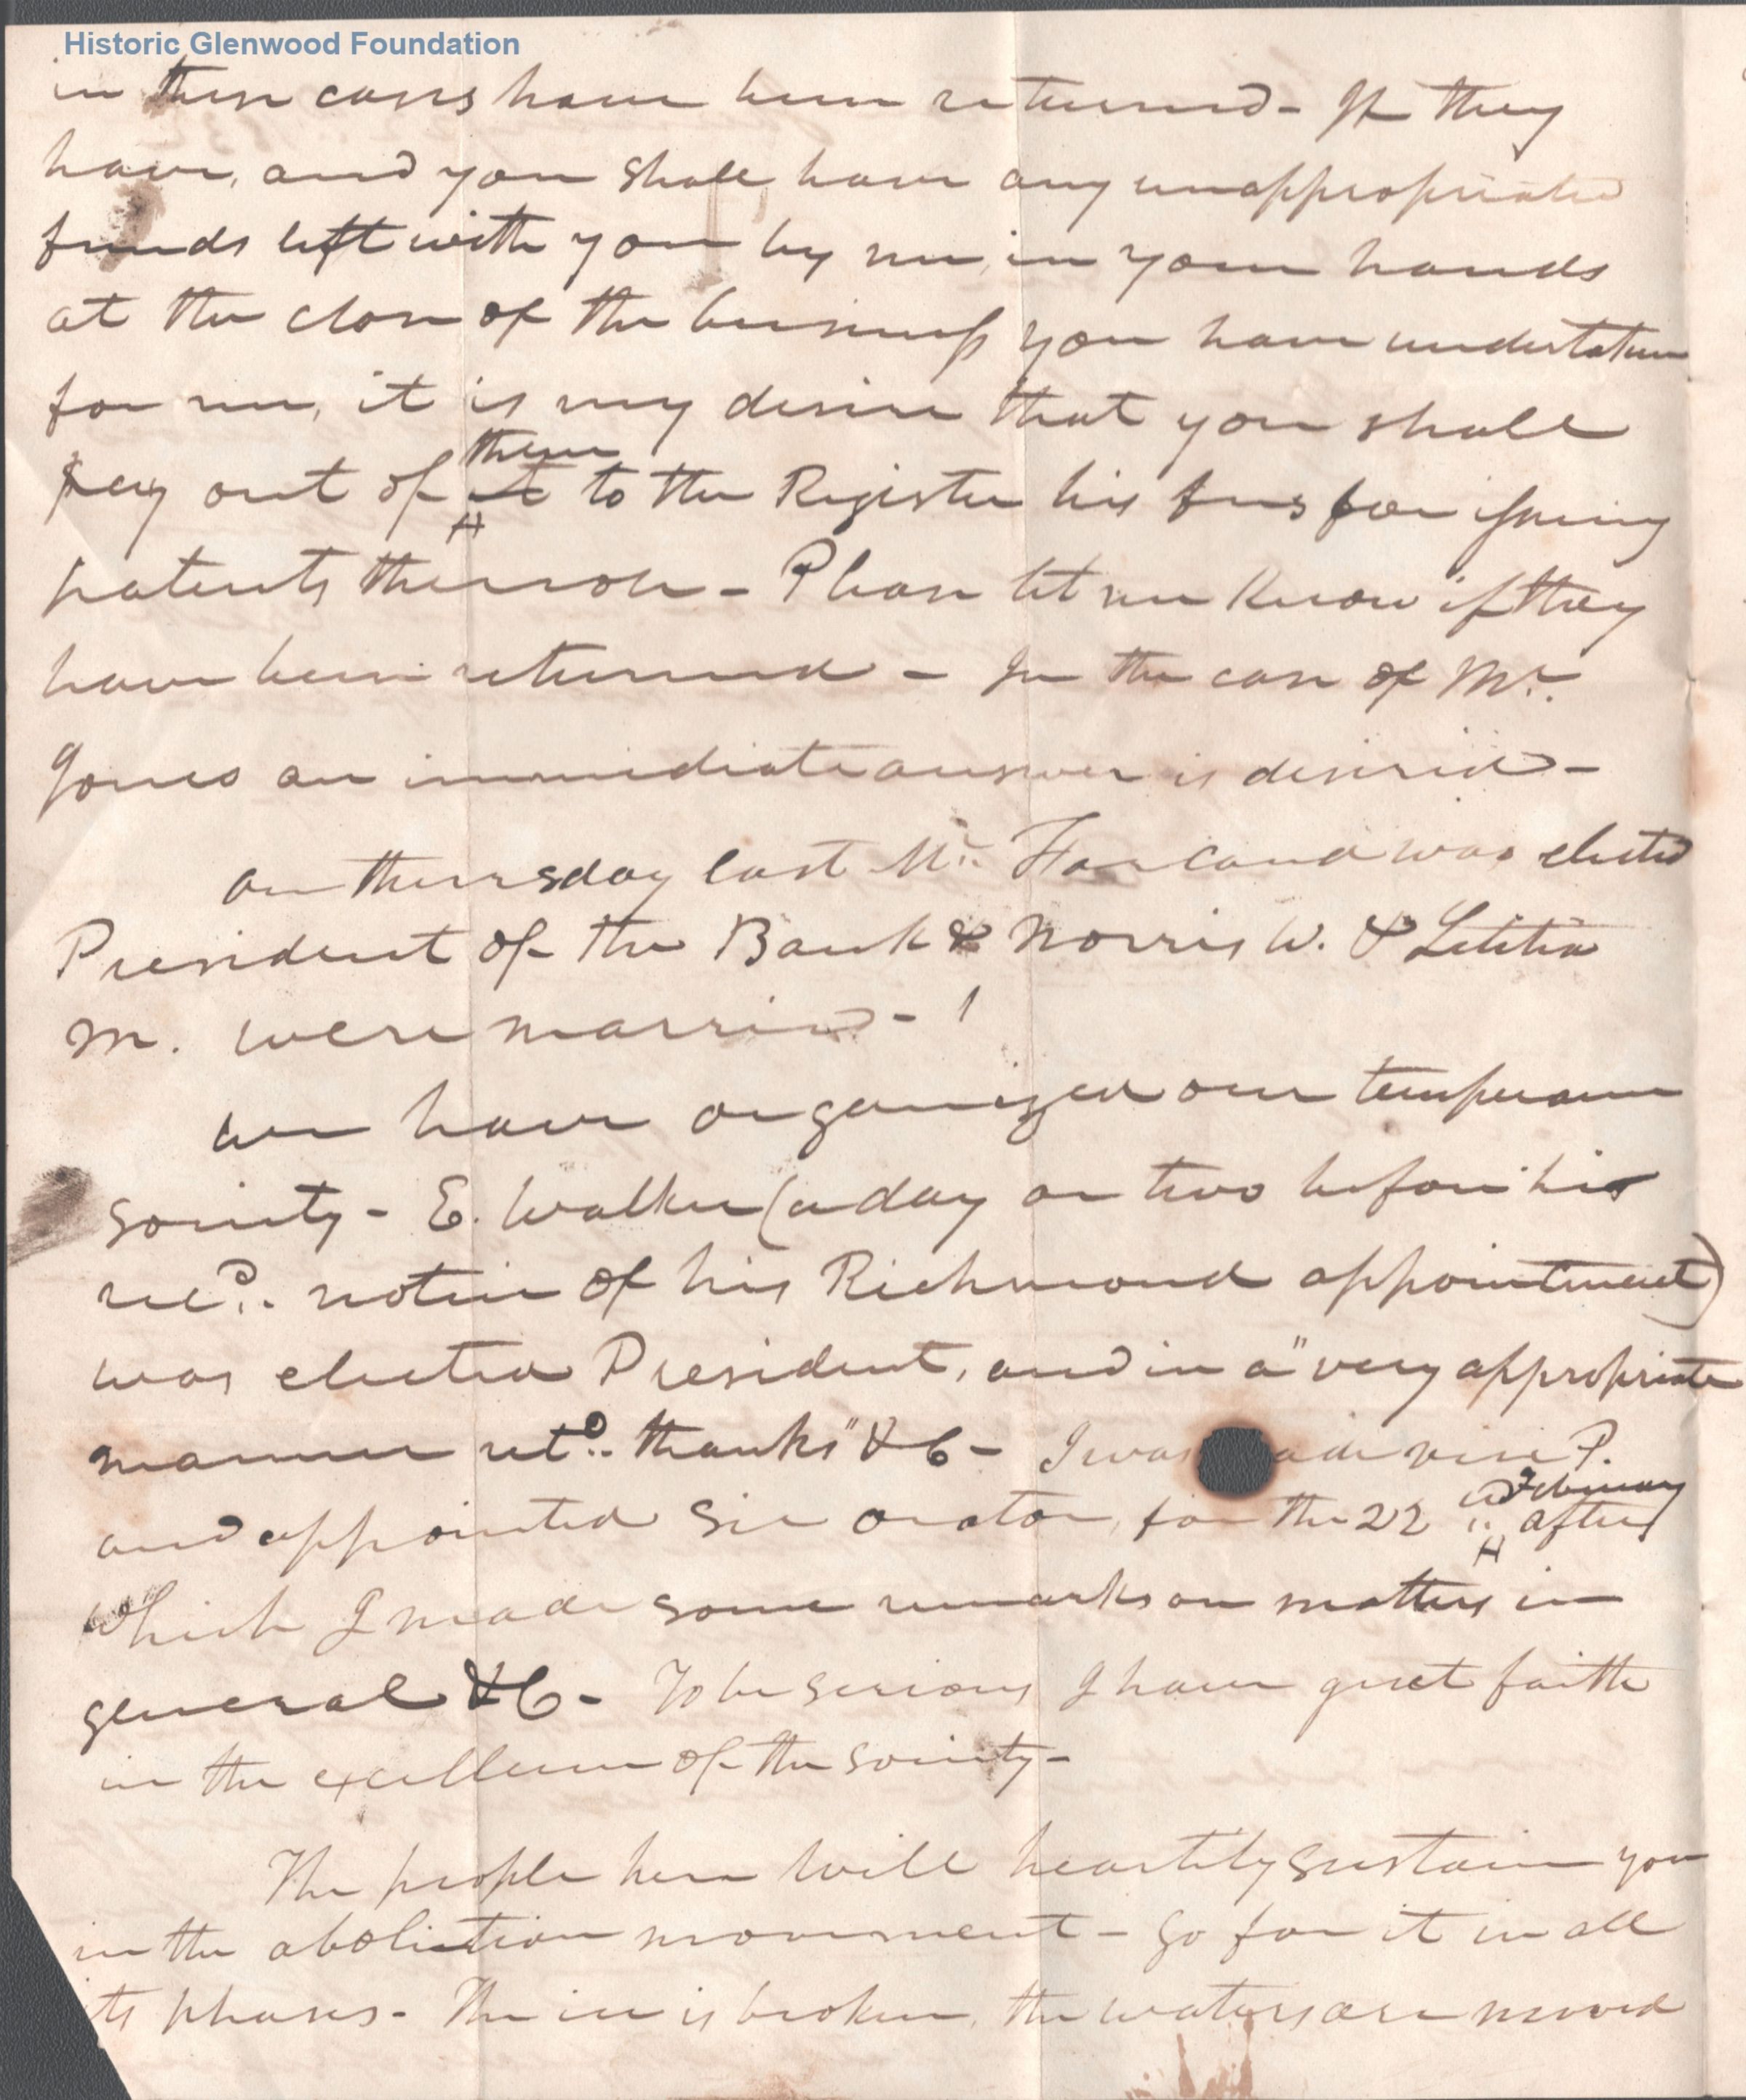 Historic Glenwood Foundation
in these cases have been returned - If they
have, and you shall have any unappropriated
funds left with you by me, in your hands
at the close of the business you have undertaken
for me, it is my desire that you shall
them
pay out of it to the Register his fees for issuing
patents thereon - Please let me know if they
have been returned - In the case of Mr.
Jones an immediate answer is desired -
On thursday last Mr. Farland was elected
President of the Bank & Norris W. & Letitia
M. were married - !
We have organized our temperance
society - E. Walker (a day or two before his
recd. notice of his Richmond appointment)
was elected President, and in a "very appropriate
manner retd. thanks" &C - I was ade vice P.
February
and appointed orator, for the 22d after
which I made some remarks on matters in
general &C - To be serious I have great faith
in the excellence of the society -
The people here will heartily sustain you
in the abolition movement - go for it in all
its phases - The ice is broken, the waters are moved